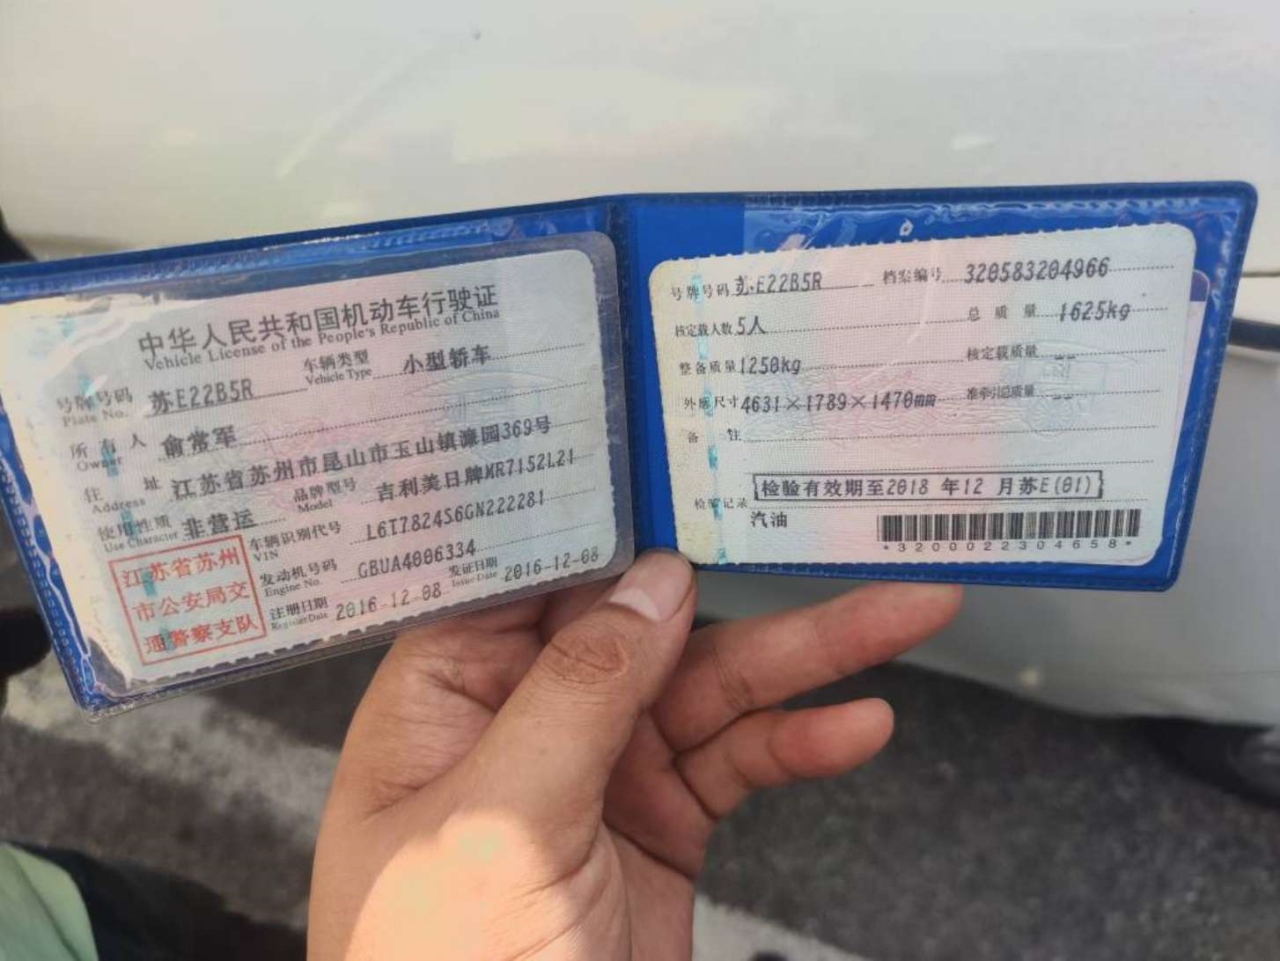 中华人民共和国机动车行驶证
Vehicle License of the People's Republic of China
号牌号码 苏E22B5R 车辆类型 小型轿车
Plate No. Vehicle Type
所有人 俞常军
Owner
住址 江苏省苏州市昆山市玉山镇濂园369号
Address
使用性质 非营运 品牌型号 吉利美日牌MR7152L21
Use Character Model
车辆识别代号 L6T7824S6GN222281
VIN
发动机号码 GBUA4006334
Engine No.
注册日期 2016-12-08 发证日期 2016-12-08
Register Date Issue Date
江苏省苏州
市公安局交
通警察支队
号牌号码 苏E22B5R 档案编号 320583204966
核定载人数 5人 总质量 1625kg
整备质量 1250kg 核定载质量 --
外廓尺寸 4631×1789×1470mm 准牵引总质量 --
备注
检验记录 检验有效期至2018年12月苏E(01)
汽油
*3200022304658*